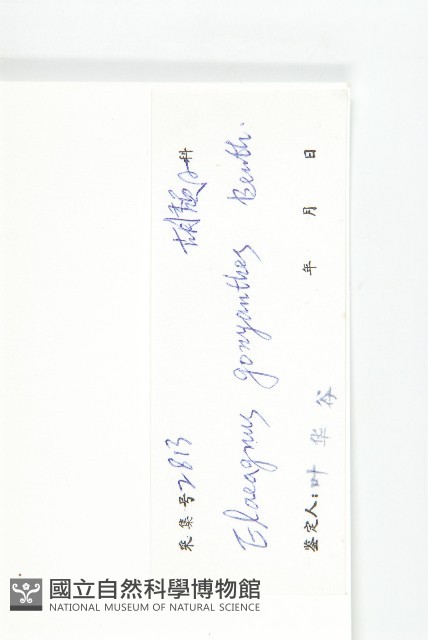 采集号 2813 胡颓子科
Elaeagnus gonyanthes Benth.
鉴定人：叶华谷 年 月 日
國立自然科學博物館
NATIONAL MUSEUM OF NATURAL SCIENCE